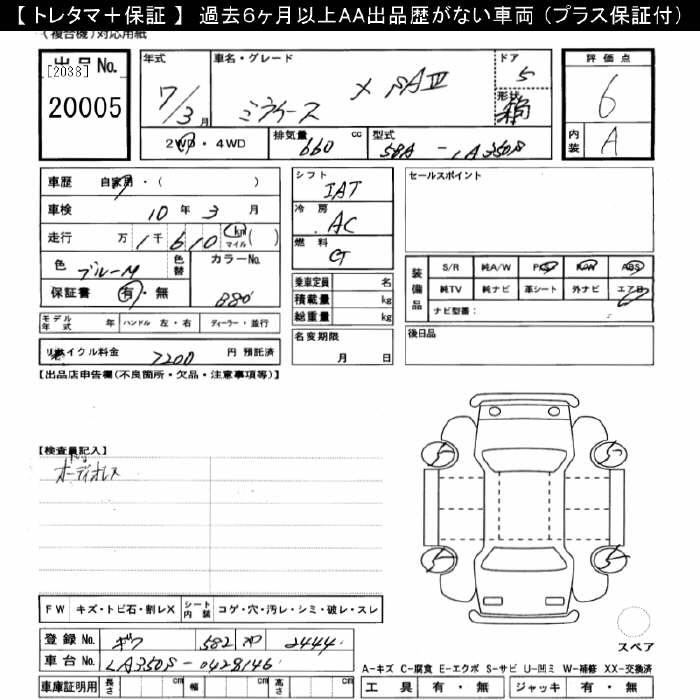 【トレタマ＋保証】 過去6ヶ月以上AA出品歴がない車両（プラス保証付）
（複合機）対応用紙
出品No.
[2038]
20005
年式
7/3月
車名・グレード
ミライース X SAⅢ
ドア
5
形状
箱
評価点
6
内装
A
2WD・4WD
排気量 660 cc
型式
5BA - LA350S
車歴 自家用・（ ）
車検 10年 3月
走行 万 1千 610 km マイル（ ）
色 ブルーM
色替
カラーNo.
B80
保証書 有・無
シフト
IAT
冷房
AC
燃料
G
乗車定員 名
積載量 kg
総重量 kg
セールスポイント
装備品
S/R 純A/W P/S P/W ABS
純TV 純ナビ 革シート 外ナビ エアB
ナビ型番：
モデル年式 年 ハンドル 左・右 ディーラー・並行
名変期限
月 日
後日品
リサイクル料金 7200 円 預託済
【出品店申告欄(不良箇所・欠品・注意事項等)】
【検査員記入】
オーディオレス
5 5
5 5
FW キズ・トビ石・割レX
シート内装 コゲ・穴・汚レ・シミ・破レ・スレ
スペア
登録No. ギフ 582 2444
車台No. LA350S-0428146
A-キズ C-腐食 E-エクボ S-サビ U-凹ミ W-補修 XX-交換済
車庫証明用 長さ cm 幅 cm 高さ cm
工具 有・無 ジャッキ 有・無